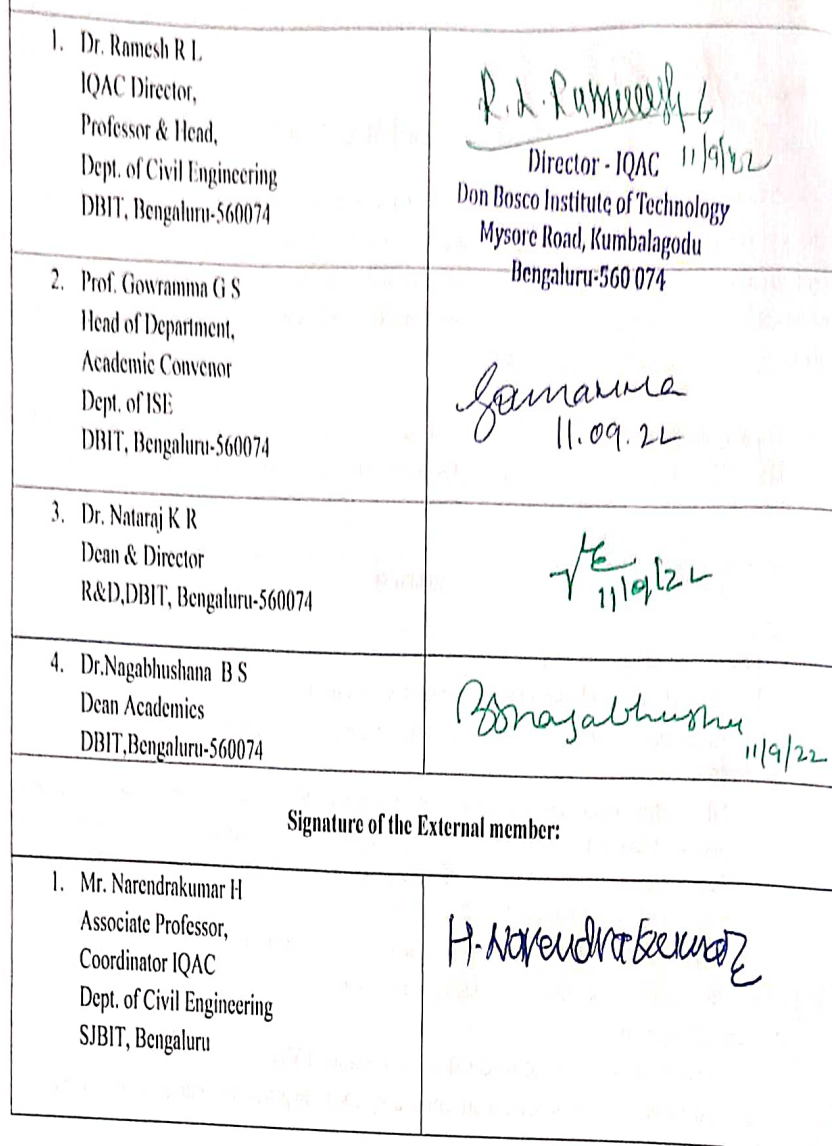 1. Dr. Ramesh R L
IQAC Director,
Professor & Head,
Dept. of Civil Engineering
DBIT, Bengaluru-560074
R. L. Ramesh
11/9/22
Director - IQAC
Don Bosco Institute of Technology
Mysore Road, Kumbalagodu
Bengaluru-560 074
2. Prof. Gowramma G S
Head of Department,
Academic Convenor
Dept. of ISE
DBIT, Bengaluru-560074
11.09.22
3. Dr. Nataraj K R
Dean & Director
R&D,DBIT, Bengaluru-560074
11/9/22
4. Dr.Nagabhushana B S
Dean Academics
DBIT,Bengaluru-560074
BSnagabhushn
11/9/22
Signature of the External member:
1. Mr. Narendrakumar H
Associate Professor,
Coordinator IQAC
Dept. of Civil Engineering
SJBIT, Bengaluru
H. Narendrakumar